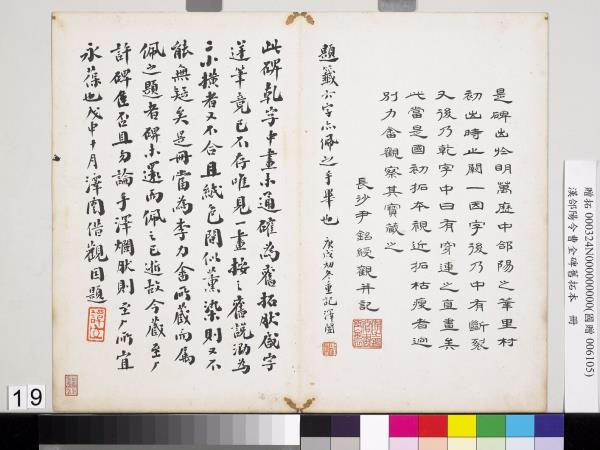 是碑出於明萬歷中郃陽之莘里村
初出時止闕一因字後乃中有斷裂
又後乃乾字中曰有穿連之直畫矣
此當是國初拓本視近拓枯瘦者迥
別力畬觀察其寶藏之
長沙尹銘綬觀并記
題籤不字亦佩之手畢也
庚戌初冬重記 澤闓
此碑乾字中畫未通確為舊拓肰咸字
逆筆竟已不存唯見一畫按之舊說泐為
二小橫者又不合且紙色間似薰染則又不
能無疑矣是冊當為李力畬所藏而屬
佩之題者碑未還而佩之已逝故今藏
許碑隹否且勿論手澤爛肰則
所宜
永葆也戊申十月澤闓借觀因題
贈拓 000324N000000000(國贈 006105)
漢郃陽令曹全碑舊拓本 冊
19